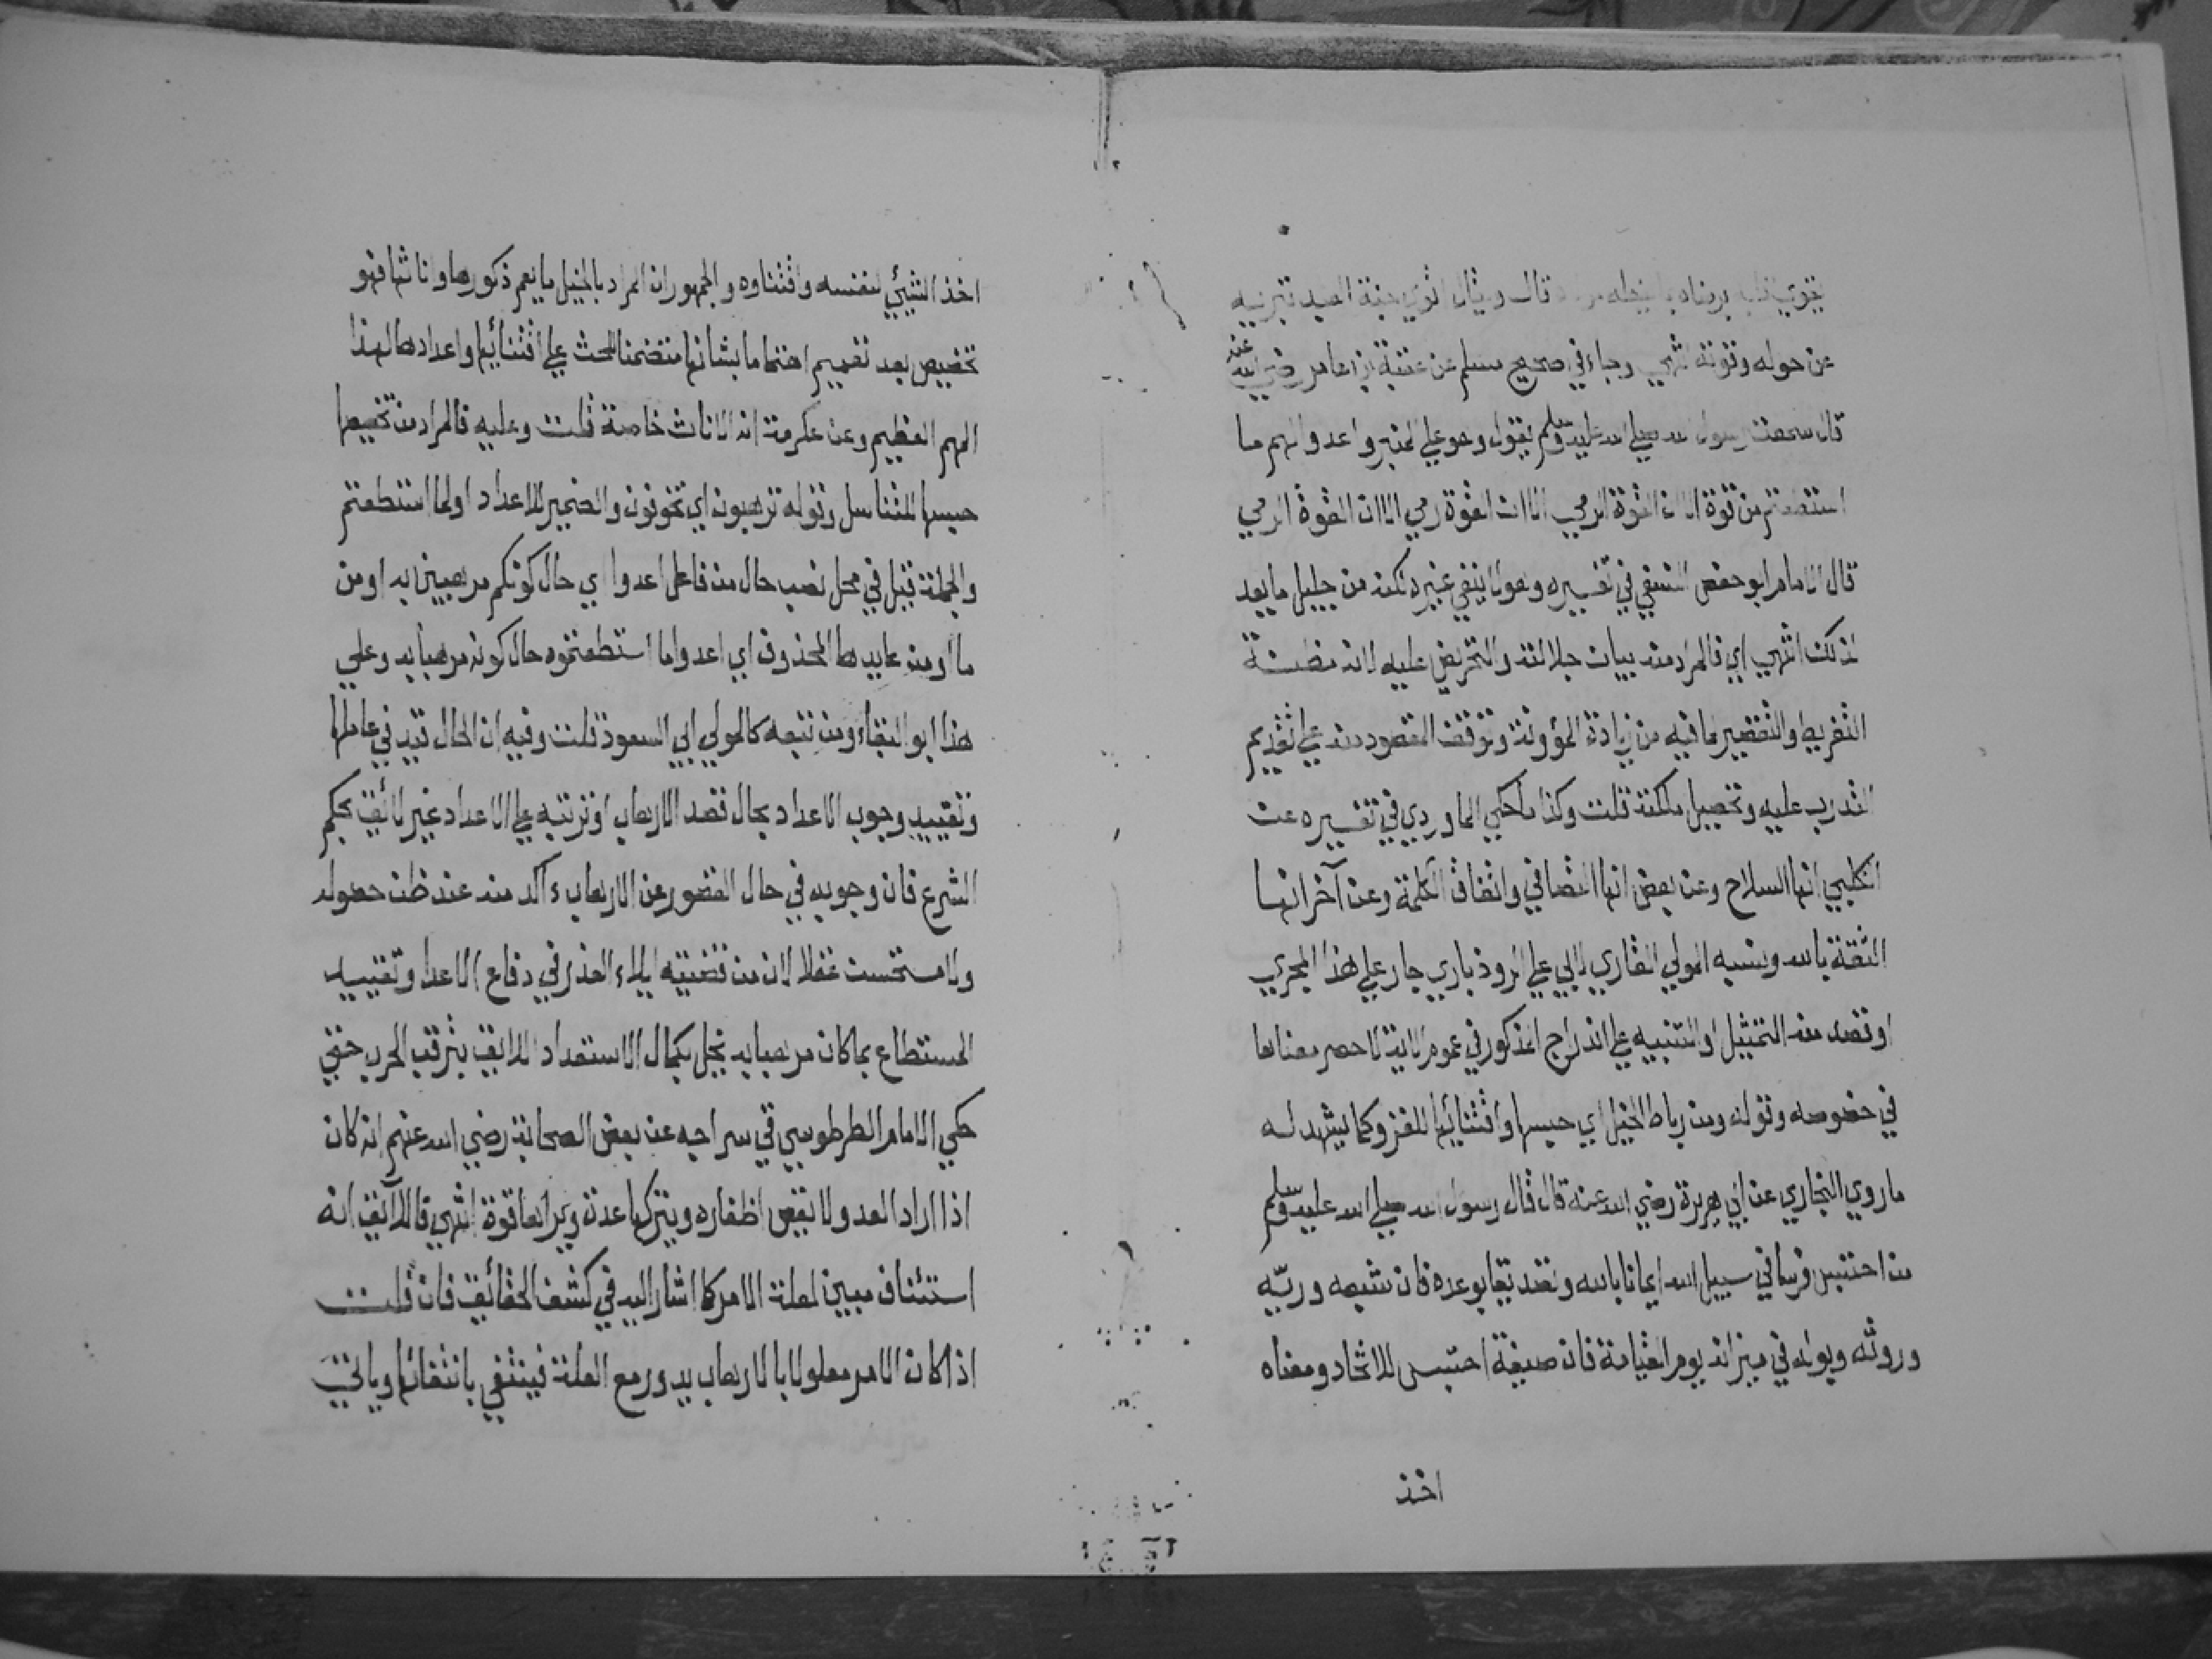 قال ويقال اتوى جنة العبد تبريه
عن حوله وقوته انتهى وجاء في صحيح مسلم عن عقبة بن عامر رضي الله عنه
قال سمعت رسول الله صلى الله عليه وسلم يقول وهو على المنبر واعدوا لهم ما
استطعتم من قوة الا ان القوة الرمي الا ان القوة رمي الا ان القوة الرمي
قال الامام ابو حفص النسفي في تفسيره وهو لا ينفي غيره لكنه من جليل ما يعد
لذلك انتهى اي فالمراد منه بيان جلالته والتحريض عليه لانه مظنة
التفريط والتقصير لما فيه من زيادة المؤونة وتوقف المقصود منه على تقديم
التدرب عليه وتحصيل ملكته قلت وكذا ما حكى الماوردي في تفسيره عن
الكلبي انها السلاح وعن بعض انها التصافي واتفاق الكلمة وعن آخر انها
الثقة بالله ونسبه المولى القاري لابي علي الروذباري جار على هذا المجرى
او قصد منه التمثيل او التنبيه على اندراج المذكور في عموم الاية لا حصر معناها
في خصوصه وقوله ومن رباط الخيل اي حبسها واقتنائها للغزو كما يشهد له
ما روى البخاري عن ابي هريرة رضي الله عنه قال قال رسول الله صلى الله عليه وسلم
من احتبس فرسا في سبيل الله ايمانا بالله وتصديقا بوعده فان شبعه وريّه
وروثه وبوله في ميزانه يوم القيامة فان صيغة احتبس للاتخاد ومعناه
اخذ
اخذ الشيئ لنفسه واقتناوه والجمهور ان المراد بالخيل ما يعم ذكورها واناثها فهو
تخصيص بعد تعميم اهتماما بشانها متضمنا للحث على اقتنائها واعدادها لهذا
المهم العظيم وعن عكرمة انه الاناث خاصة قلت وعليه فالمراد من تخصيصها
حبسها للتناسل وقوله ترهبون اي تخوفون والضمير للاعداد او لما استطعتم
والجملة قيل في محل نصب حال من فاعل اعدوا اي حال كونكم مرهبين به او من
ما او من عايدها المحذوف اي اعدوا ما استطعتموه حال كونه مرهبا به وعلى
هذا ابو البقاء ومن تبعه كالمولى ابي السعود قلت وفيه ان الحال قيد في عاملها
وتقييد وجوب الاعداد بحال قصد الارهاب او ترتبه على الاعداد غير لائق بحكم
الشرع فان وجوبه في حال القصور عن الارهاب ءآكد منه عند ظن حصوله
ولا مستحسن عقلا لان من قضيته ابلاء العذر في دفاع الاعدا وتقييد
المستطاع بما كان مرهبا به يخل بكمال الاستعداد اللايق بترقب الحرب حتى
حكى الامام الطرطوسي في سراجه عن بعض الصحابة رضي الله عنهم انه كان
اذا اراد العدو لا يقص اظفاره ويتركها عدة ويراها قوة انتهى فالآنف انه
استئناف مبين لعلة الامر كما اشار اليه في كشف الحقائق فان قلت
اذا كان الامر معلولا بالارهاب يدور مع العلة فينتفي بانتفائها